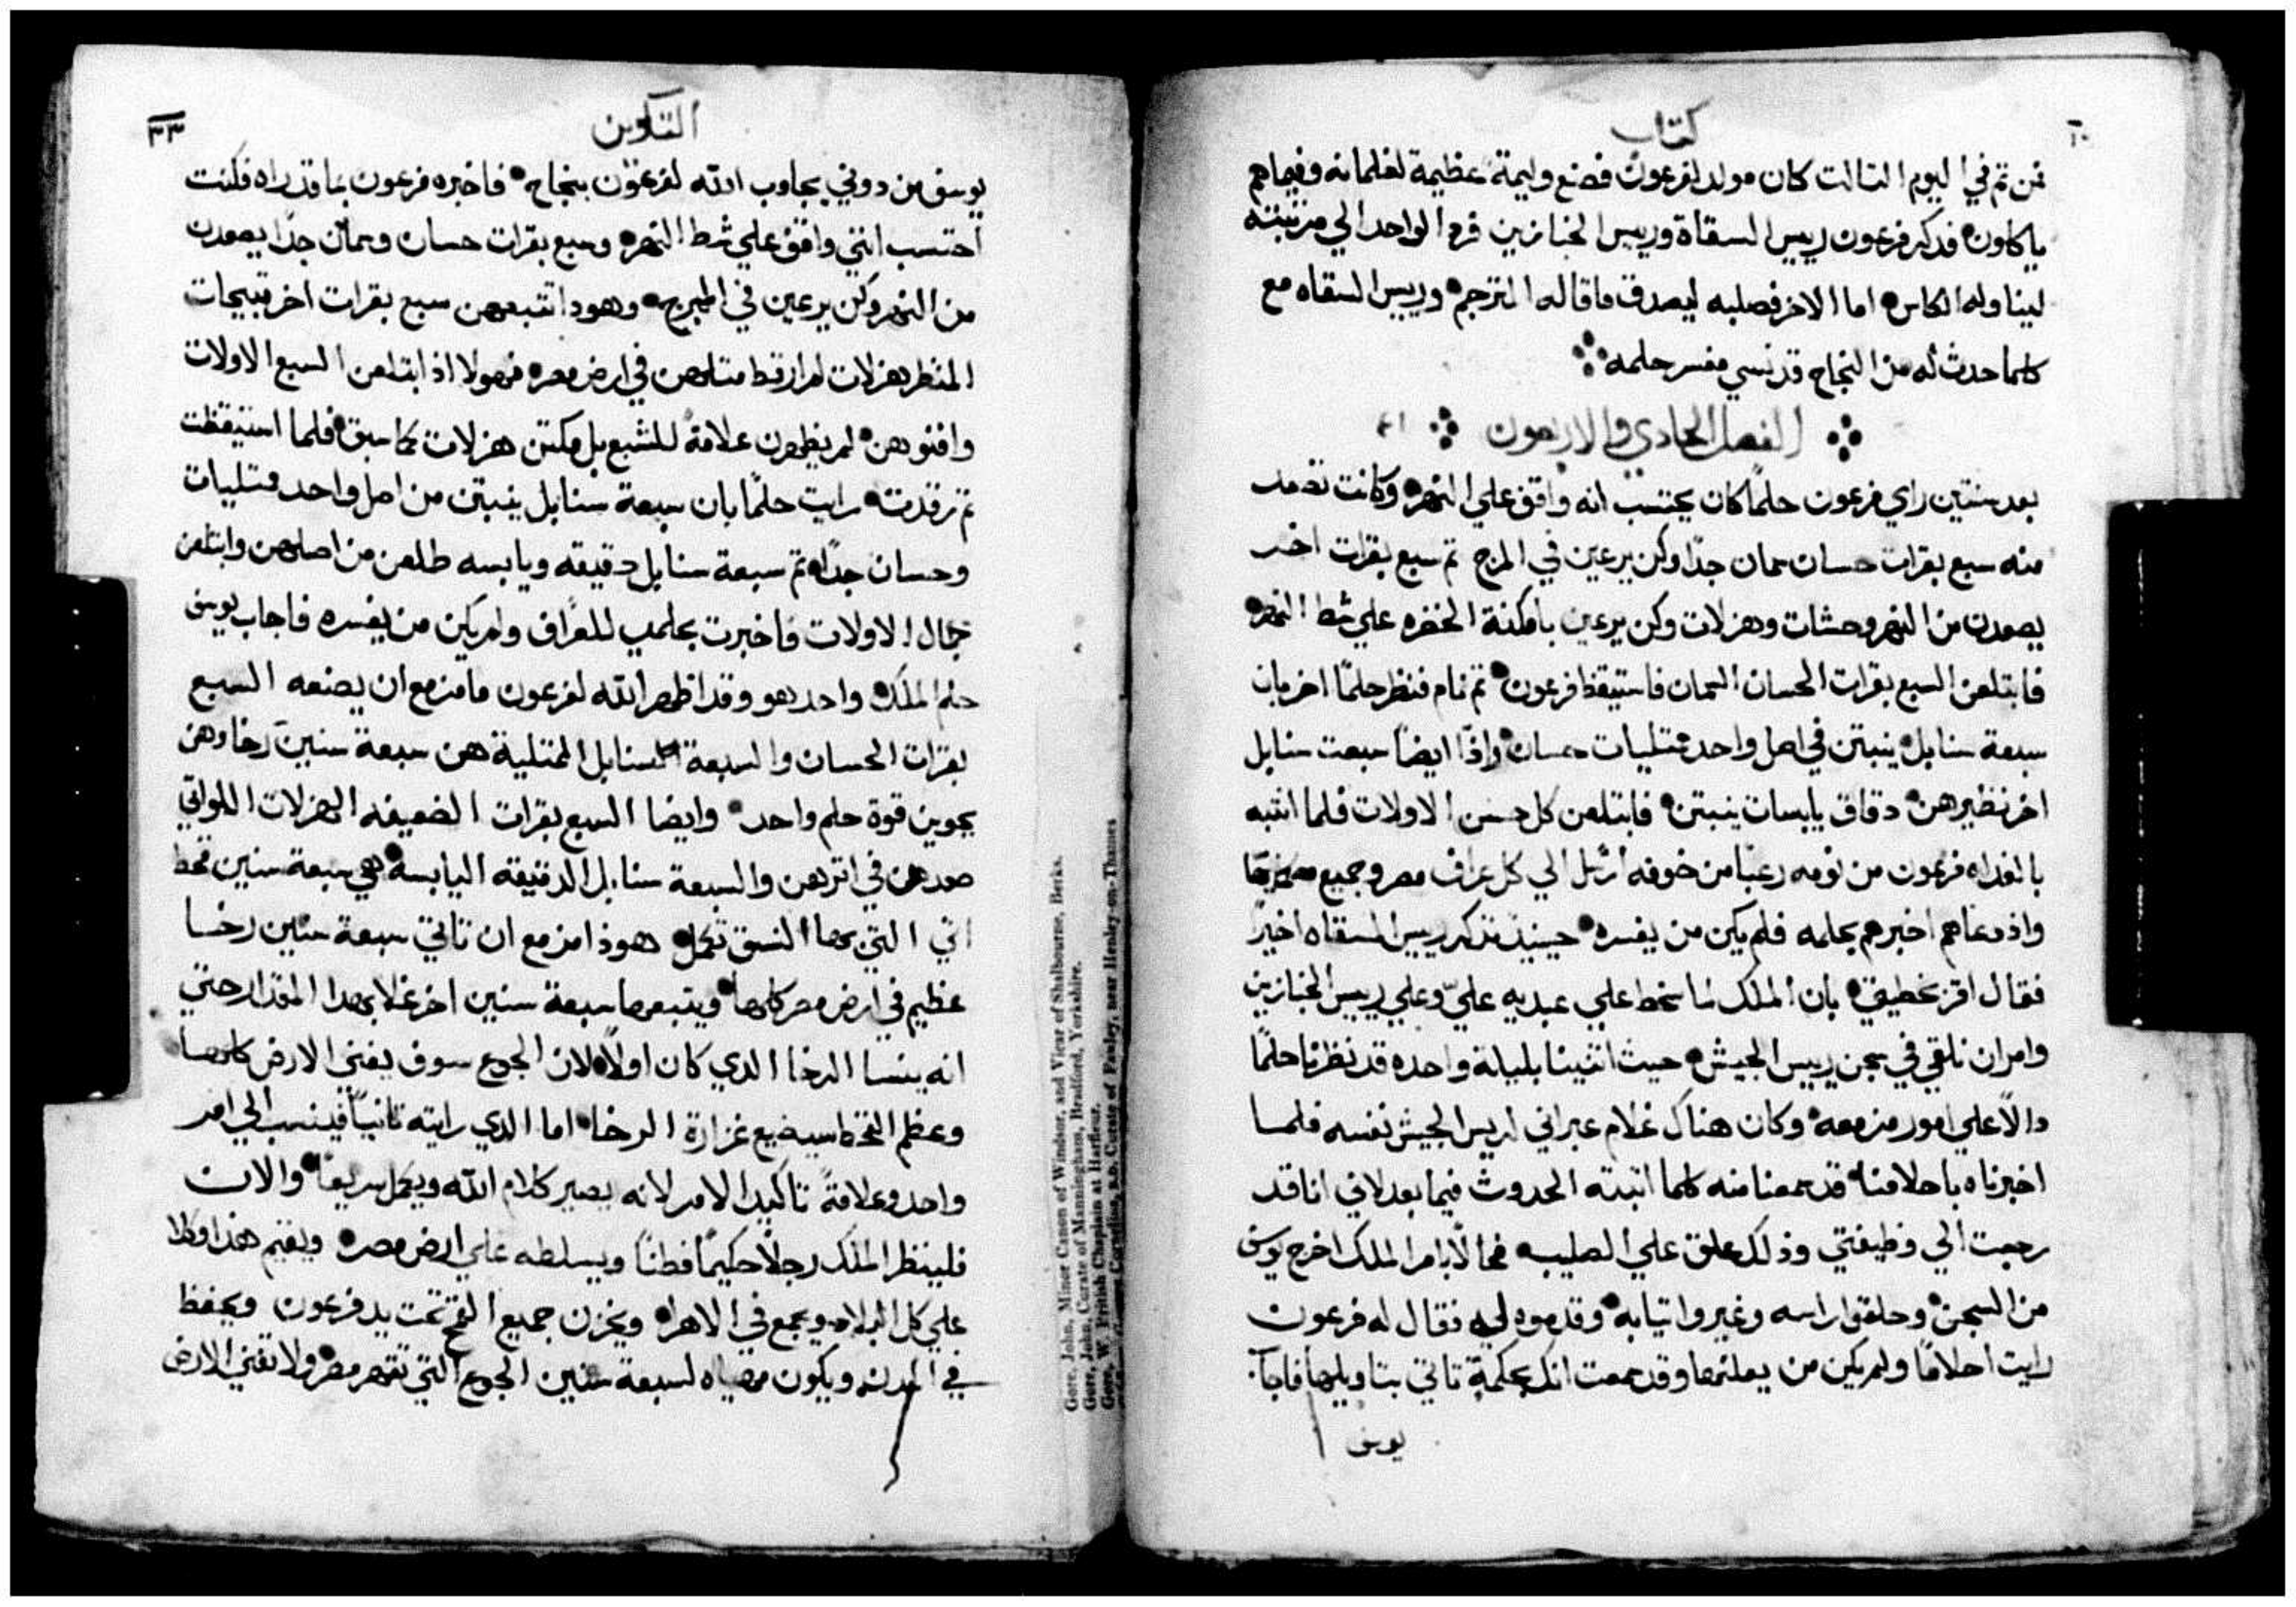 كتاب
فمن تم في اليوم التالت كان مولد لفرعون فصنع وليمة عظيمة لغلمانه وفيماهم
ياكلون فدكر فرعون رييس السقاة ورييس الخبازين فرد الواحد الي مرتبته
ليناوله الكاس اما الاخر فصلبه ليصدق ماقاله المترجم ورييس السقاه مع
كلما حدث له من النجاح قد نسي مفسر حلمه
الفصل الحادي والاربعون ٤١
بعد سنتين راي فرعون حلمًا كان يحتسب انه واقف علي النهر وكانت تصعد
منه سبع بقرات حسان سمان جدًا وكن يرعين في المرج تم سبع بقرات اخر
يصعدن من النهر وحشات وهزلات وكن يرعين بامكنة الخضره علي شط النهر
فابتلعن السبع بقرات الحسان السمان فاستيقظ فرعون تم نام فنظر حلمًا اخر بان
سبعة سنابل ينبتن في اصل واحد متليات حسان واذًا ايضًا سبعت سنابل
اخر نظيرهن دقاق يابسات ينبتن فابتلعن كل حسن الاولات فلما انتبه
بالغداه فرعون من نومه رعبًا من خوفه ارسل الي كل عراف مصر وجميع
واذ دعاهم اخبرهم بحلمه فلم يكن من يفسره حينيذ تذكر رييس السقاه اخيرًا
فقال اقر بخطيتي بان الملك لما سخط علي عبديه عليّ وعلي رييس الخبازين
وامر ان نلقي في سجن رييس الجيش حيث اثنينا بليلة واحده قد نظرنا حلمًا
دالًا علي امور مزمعه وكان هناك غلام عبراني لرييس الجيش نفسه فلما
اخبرناه باحلامنا قد سمعنا منه كلما اتبته الحدوث فيما بعد لاني انا قد
رجعت الي وظيفتي وذلك علق علي الصليب فحالًا بامر الملك اخرج يوسف
من السجن وحلقوا راسه وغيروا تيابه وقدموه ليه فقال له فرعون
رايت احلامًا ولم يكن من يعلنها وقد سمعت انك بحكمة تاتي بتاويلها فاجآ
يوسف
التكوين
٣٣
يوسف من دوني يجاوب الله لفرعون بنجاح فاخبره فرعون بما قد راه فكنت
احتسب انني واقف علي شط النهر وسبع بقرات حسان وسمان جدًا يصعدن
من النهر وكن يرعين في المرج وهودا تتبعهن سبع بقرات اخر قبيحات
المنظر هزلات لم ار قط متلهن في ارض مصر فهولا اذ ابتلعن السبع الاولات
وافنوهن لم يظهرن علامة للشبع بل مكتن هزلات كما سبق فلما استيقظت
تم رقدت رايت حلمًا بان سبعة سنابل ينبتن من اصل واحد متليات
وحسان جدًا تم سبعة سنابل دقيقه ويابسه طلعن من اصلهن وابتلعن
جمال الاولات فاخبرت بحلمي للعراف ولم يكن من يفسره فاجاب يوسف
حلم الملك واحد هو وقد اظهر الله لفرعون ما مزمع ان يصنعه السبع
بقرات الحسان والسبعة السنابل الممتلية هن سبعة سنين رخا وهن
يحوين قوة حلم واحد وايضا السبع بقرات الضعيفه الهزلات اللواتي
صعدهن في اترهن والسبعة سنابل الدقيقه اليابسة هي سبعة سنين قحط
اتي التي بهدا النسق تكمل هوذا مزمع ان تاتي سبعة سنين رخا
عظيم في ارض مصر كلها ويتبعها سبعة سنين اخر غلا بهدا المقدار حتي
انه ينسا الرخا الدي كان اولًا لان الجوع سوف يفني الارض كلها
وعظم القحط سيضيع غزارة الرخا اما الدي رايته تانيًا فينسب الي امر
واحد وعلامةً تاكيد الامر لانه يصير كلام الله ويكمل سريعًا والان
فلينظر الملك رجلًا حكيمًا فطنًا ويسلطه علي ارض مصر ويقيم هدا وكلا
علي كل البلاد ويجمع في الاهرا ويخزن جميع القمح تحت يد فرعون ويحفظ
في المدن ويكون مصياه لسبعة سنين الجوع التي تقهر مصر ولا تفني الارض
Gore, John, Minor Canon of Windsor, and Vicar of Shalbourne, Berks.
Gore, John, Curate of Manningham, Bradford, Yorkshire.
Gore, W. British Chaplain at Harfleur.
Curate of Fawley, near Henley-on-Thames